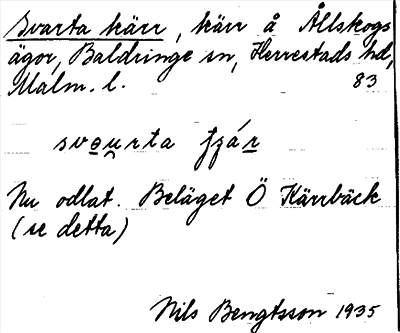 Svarta kärr, kärr å Ållskogs
ägor, Baldringe sn, Herrestads hd,
Malm. l. 83
svo̲u̯rta fzár̲
Nu odlat. Beläget Ö Kärrbäck
(se detta)
Nils Bengtsson 1935